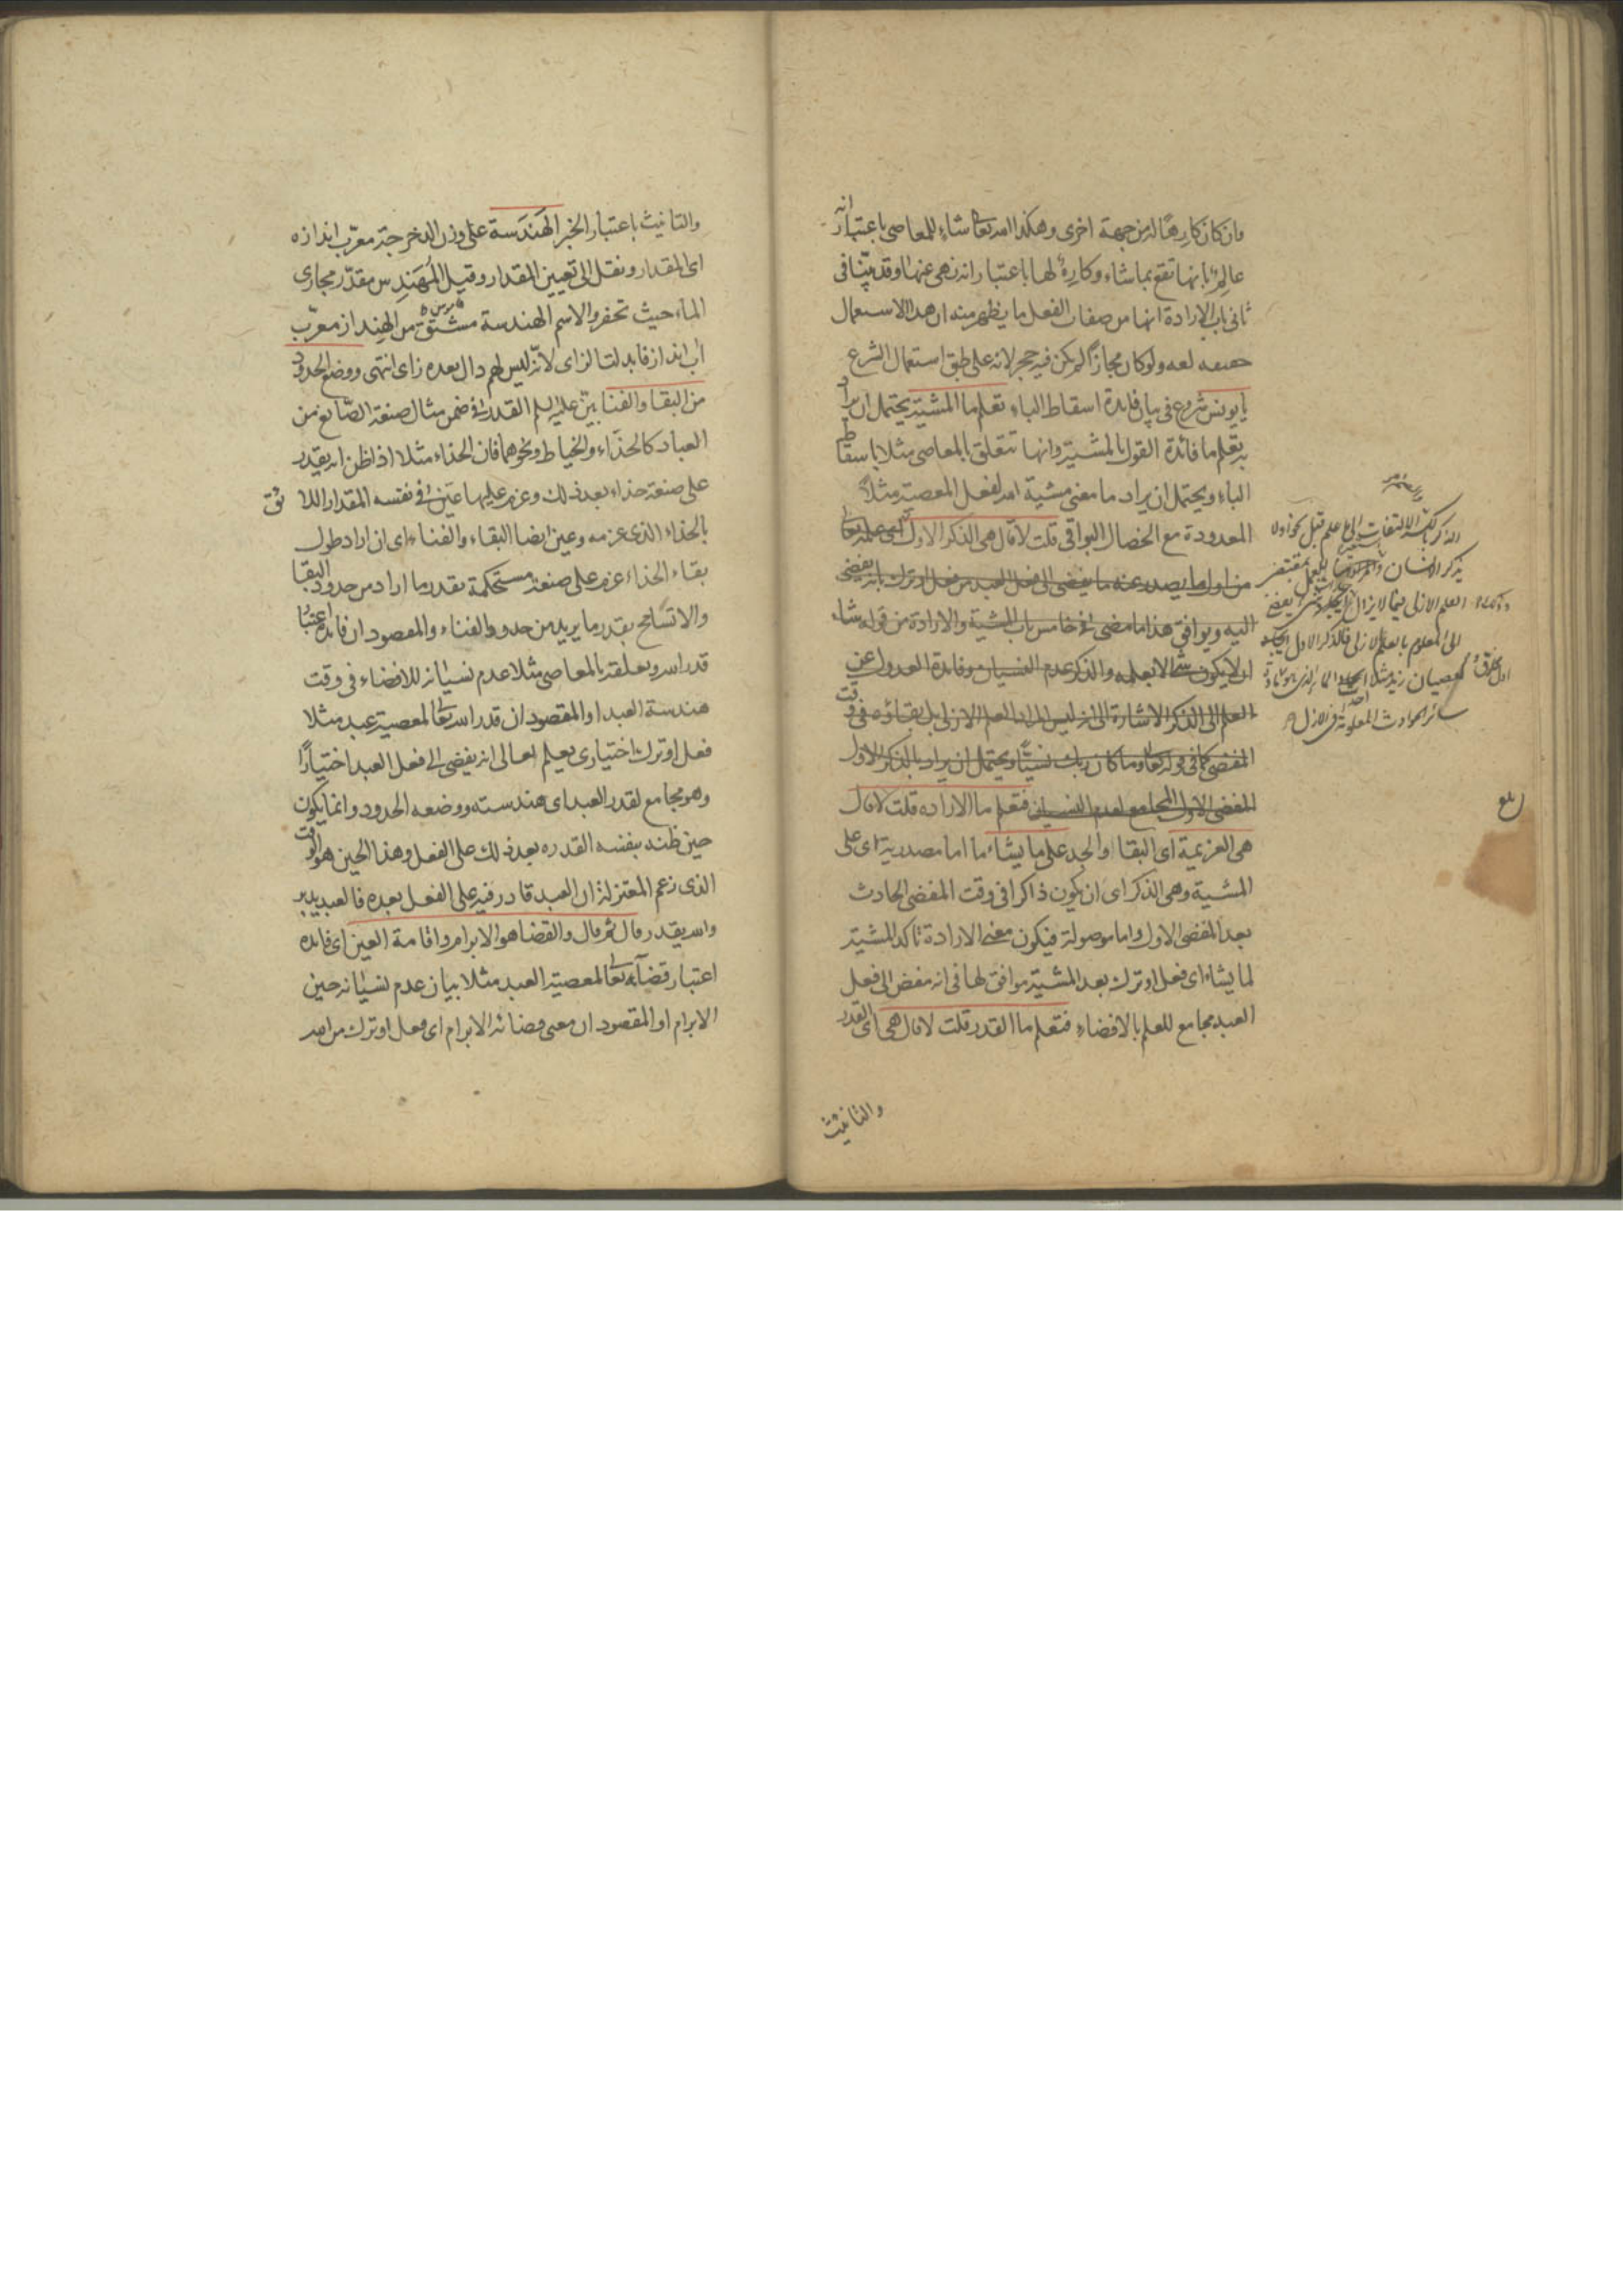 وان كان كارهًا له من جهة اخرى وهكذا الله تعالى شاء للمعاصى باعتبار انه
عالم بانها تقع بما شاء وكارهٌ لها باعتبار انه نهى عنها وقد بيّنا فى
ثانى باب الارادة انها من صفات الفعل ما يظهر منه ان هذا الاستعمال
حقيقه لغه ولو كان مجازاً لم يكن فيه حجر لانه على طبق استعمال الشرع
يا يونس شروع فى بيان فايدة اسقاط الباء تعلم ما المشيّة يحتمل ان يراد
به تعلم ما فائدة القول بالمشيّة وانها تتعلق بالمعاصى مثلا باسقاط
الباء ويحتمل ان يراد ما معنى مشية الله لفعل المعصية مثلاً
المعدودة مع الخصال البواقى قلت لا قال هى الذكر الاول اى علمه تعالى
من اول ما يصدر عنه ما يفضى الى فعل العبد من فعل او ترك بانه يفضى
اليه ويوافق هذا ما مضى فى خامس باب المشية والارادة من قوله شاء
ان لا يكون شئ الا بعلمه والذكر عدم النسيان وفائدة العدول عن
العلم الى الذكر الاشارة الى انه ليس المراد العلم الازلى بل بقاؤه فى وقت
المفضى كما فى قوله تعالى وما كان ربك نسيّا ويحتمل ان يراد بالذكر الاول
المفضى الاول المجامع لعدم النسيان فتعلم ما الاراده قلت لا قال
هى العزيمة اى البقاء والجد على ما يشاء ما اما مصدرية اى على
المشية وهى الذكر اى ان يكون ذاكرا فى وقت المفضى الحادث
بعد المفضى الاول واما موصولة فيكون معنى الارادة تاكد المشيّة
لما يشاء اى فعل او ترك بعد المشيّة موافق لها فى انه مفض الى فعل
العبد مجامع للعلم بالافضاء فتعلم ما القدر قلت لا قال هى اى القدر
والتانيث
الذكر الالتفات الى علم قبل
يذكر الانسان
العلم الازلى فيما لا يزال
الى المعلوم بالعلم الازلى فالذكر الاول
كعصيان زيد مثلا
سائر الحوادث المعلومة فى الازل
بلغ
والتانيث باعتبار الخبر الهَندَسة على وزن الدحرجة معرّب اندازه
اى المقدار ونقل الى تعيين المقدار وقيل المُهَندِس مقدّر مجارى
الماء حيث تحفر والاسم الهندسة مشتق من الهِنداز معرّب
آب انداز فابدلت الزاى لانّه ليس لهم دال بعده زاى انتهى ووضع الحدود
من البقاء والفناء بيّن عليه السلم القدر فى ضمن مثال صنعة الصّانع من
العباد كالحذّاء والخياط ونحوهما فان الحذاء مثلا اذا ظن انه يقدر
على صنعة حذاء بعد ذلك وعزم عليها عيّن فى نفسه المقدار اللائق
بالحذاء الذى عزمه وعين ايضا البقاء والفناء اى ان اراد طول
بقاء الحذاء عزم على صنعة مستحكمة بقدر ما اراد من حدود البقاء
والا تسامح بقدر ما يريد من حدود الفناء والمقصود ان فايدة اعتبار
قدر الله وتعلقه بالمعاصى مثلا عدم نسيانه للافضاء فى وقت
هندسة العبد او المقصود ان قدر الله تعالى لمعصية عبد مثلا
فعل او ترك اختيارى يعلم تعالى انه يفضى الى فعل العبد اختيارًا
وهو مجامع لقدر العبد اى هندسته ووضعه الحدود وانما يكون
حين ظنه بنفسه القدره بعد ذلك على الفعل وهذا الحين هو الوقت
الذى زعم المعتزلة ان العبد قادر فيه على الفعل بعده فالعبد يدبر
والله يقدر قال ثم قال والقضا هو الابرام واقامة العين اى فايده
اعتبار قضائه تعالى لمعصية العبد مثلا بيان عدم نسيانه حين
الابرام او المقصود ان معنى قضائه الابرام اى فعل او ترك من الله